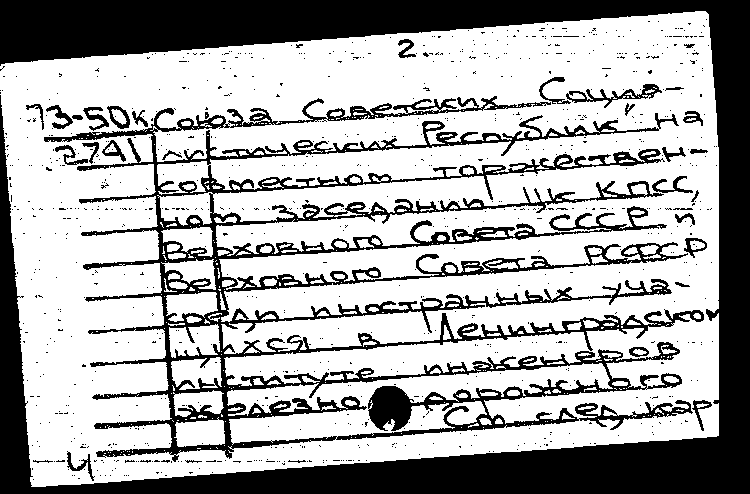 2.
73-50к Союза Советских Социа-
2741 листических Республик" на
совместном торжествен-
ном заседании ЦК КПСС,
Верховного Совета СССР и
Верховного Совета РСФСР
среди иностранных уча-
щихся в Ленинградском
институте инженеров
железнодорожного
См. след. кар-